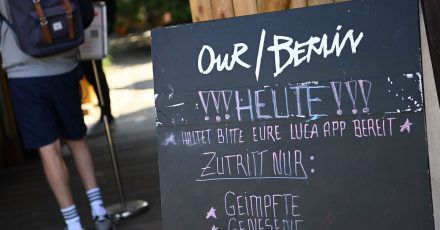 OUR/BERLIN
!!! HEUTE !!!
★ HALTET BITTE EURE LUCA APP BEREIT ★
ZUTRITT NUR:
★ GEIMPFTE
★ GENESENE